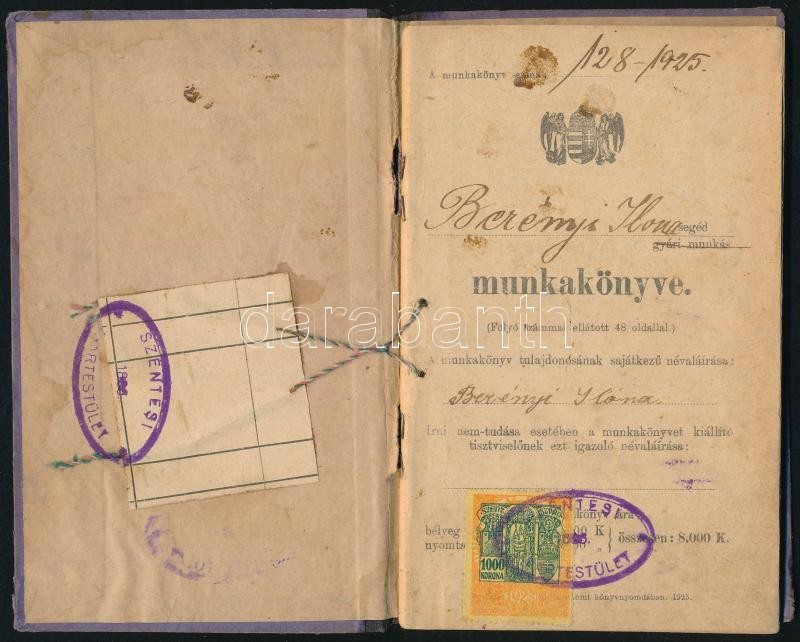 SZENTESI
1885.
IPARTESTÜLET
A munkakönyv száma 128-1925.
Berényi Ilona segéd
gyári munkás
munkakönyve.
(Folyó számmal ellátott 48 oldallal.)
A munkakönyv tulajdonosának sajátkezű névaláirása:
Berényi Ilóna
Irni nem-tudása esetében a munkakönyvet kiállító
tisztviselőnek ezt igazoló névaláirása:
SZENTESI
IPARTESTÜLET
bélyeg
összesen: 8.000 K.
1000
KORONA
könyvnyomdában. 1925.
darabanth